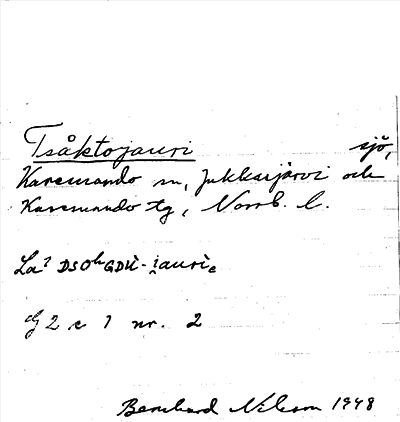 Tsåktojauri sjö,
Karesuando sn, Jukkasjärvi och
Karesuando tg, Norrb. l.
La? DSOᵏGDU-i̯auri.
dg 2 c 1 nr. 2
Bernhard Nilsson 1948